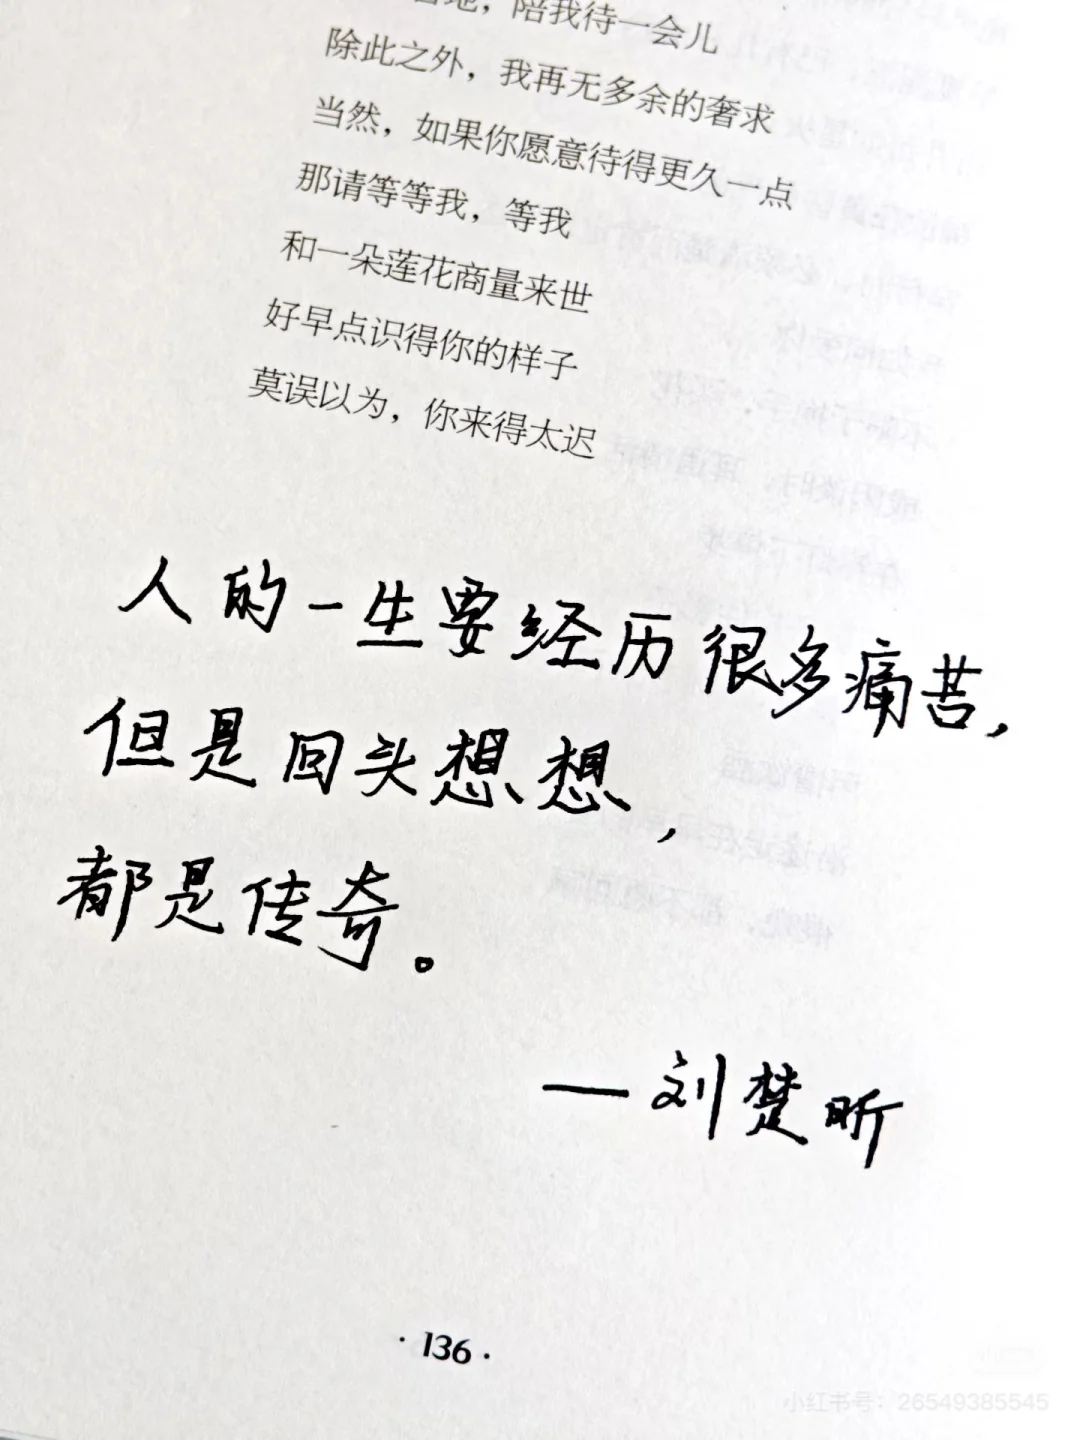 陪我待一会儿
除此之外，我再无多余的奢求
当然，如果你愿意待得更久一点
那请等等我，等我
和一朵莲花商量来世
好早点识得你的样子
莫误以为，你来得太迟
人的一生要经历很多痛苦，
但是回头想想，
都是传奇。
—刘楚昕
·136·
小红书号：26549385545